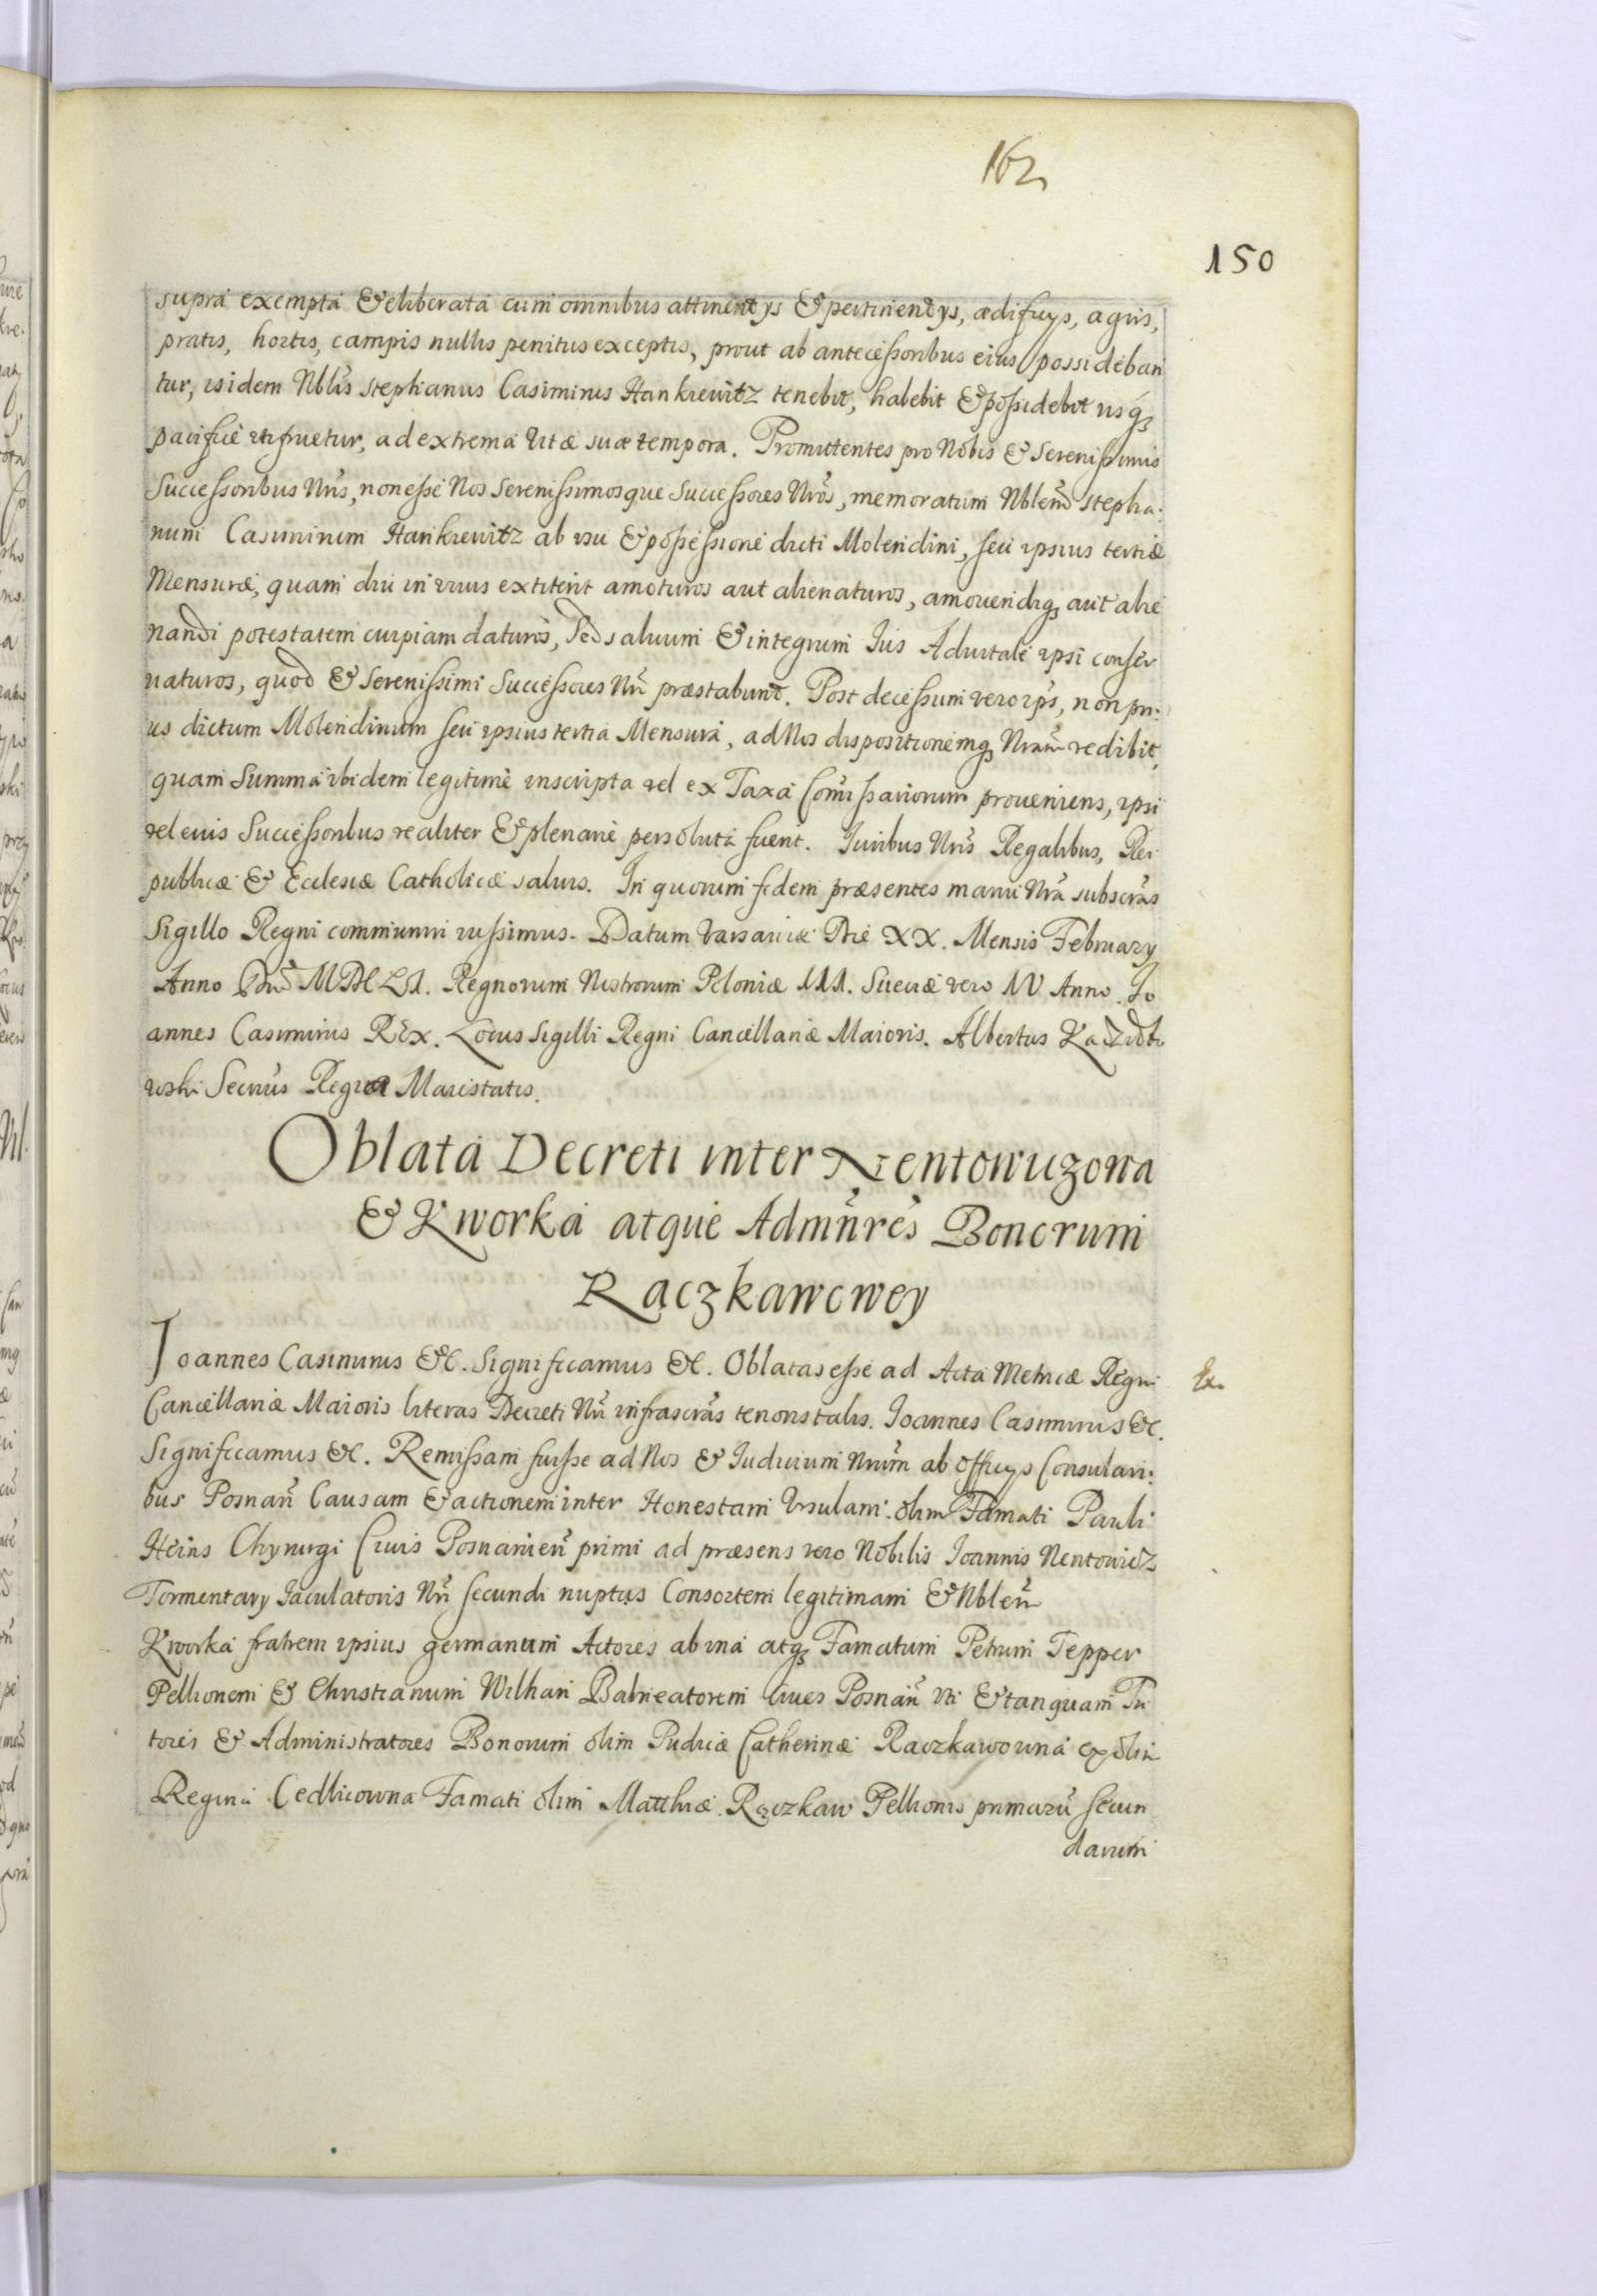 162
150
supra exempta & eliberata cum omnibus attinentys & pertinentys, ædificys, agris,
pratis, hortis, campis nullis penitus exceptis, prout ab antecessoribus eius possideban
tur, isidem Nblis Stephanus Casimirus Hankiewitz tenebit, habebit & possidebit usq3
pacificè utifruetur, ad extrema vitæ suæ tempora. Promittentes pro Nobis & Serenissimis
Successoribus Nris, non esse Nos Serenissimosque Successores Nros, memoratum Nblem Stepha:
num Casimirum Hankiewitz ab usu & possessione dicti Molendini, seu ipsius tertiæ
Mensuræ, quam diu in vivis extiterit amoturos aut alienaturos, amovendiq3 aut alie
nandi potestatem cuipiam daturos, Sed salvum & integrum Ius Advitale ipsi conser
vaturos, quod & Serenissimi Successores Nri præstabunt. Post decessum vero ips, non pri:
us dictum Molendinum seu ipsius tertia Mensura, ad Nos dispositionemq3 Nram redibit,
quam Summa ibidem legitimè inscripta vel ex Taxa Comissariorum proveniens, ipsi
vel eius Successoribus realiter & plenariè persoluta fuerit. Iuribus Nris Regalibus, Rei
publicæ & Ecclesiæ Catholicæ salvis. In quorum fidem præsentes manu Nra subscras
Sigillo Regni communiri iussimus. Datum Varsaviæ Die XX. Mensis February
Anno Dni MDCLI. Regnorum Nostrorum Poloniæ III. Sueciæ vero IV Anno. Io
annes Casimirus REx. Locus Sigilli Regni Cancellariæ Maioris. Albertus Kadzidło
wski Secrius Regiæ Maiestatis.
Oblata Decreti inter Nentowiczowa
& Kworka atque Admnres Bonorum
Rączkawowey
Ioannes Casimirus &c. Significamus &c. Oblatas esse ad Acta Metricæ Regni
Cancellariæ Maioris literas Decreti Nri infrascras tenoris talis. Ioannes Casimirus &c.
Significamus &c. Remissam fuisse ad Nos & Iudicium Nrum ab Officys Consulari:
bus Posnan Causam & actionem inter Honestam Ursulam olim Famati Pauli
Heins Chyrurgi Civis Posnanien primi ad præsens vero Nobilis Ioannis Nentowicz
Tormentary Iaculatoris Nri secundi nuptus Consortem legitimam & Nblem
Kworka fratrem ipsius germanum Actores ab una atq3 Famatum Petrum Tepper
Pellionem & Christianum Wilhan Balneatorem Cives Posnan uti & tanquam Tu
tores & Administratores Bonorum olim Pudicæ Catherinæ Raczkawowna ex olim
Regina Cedlicowna Famati olim Matthiæ Rączkaw Pellionis primarum secun
darum